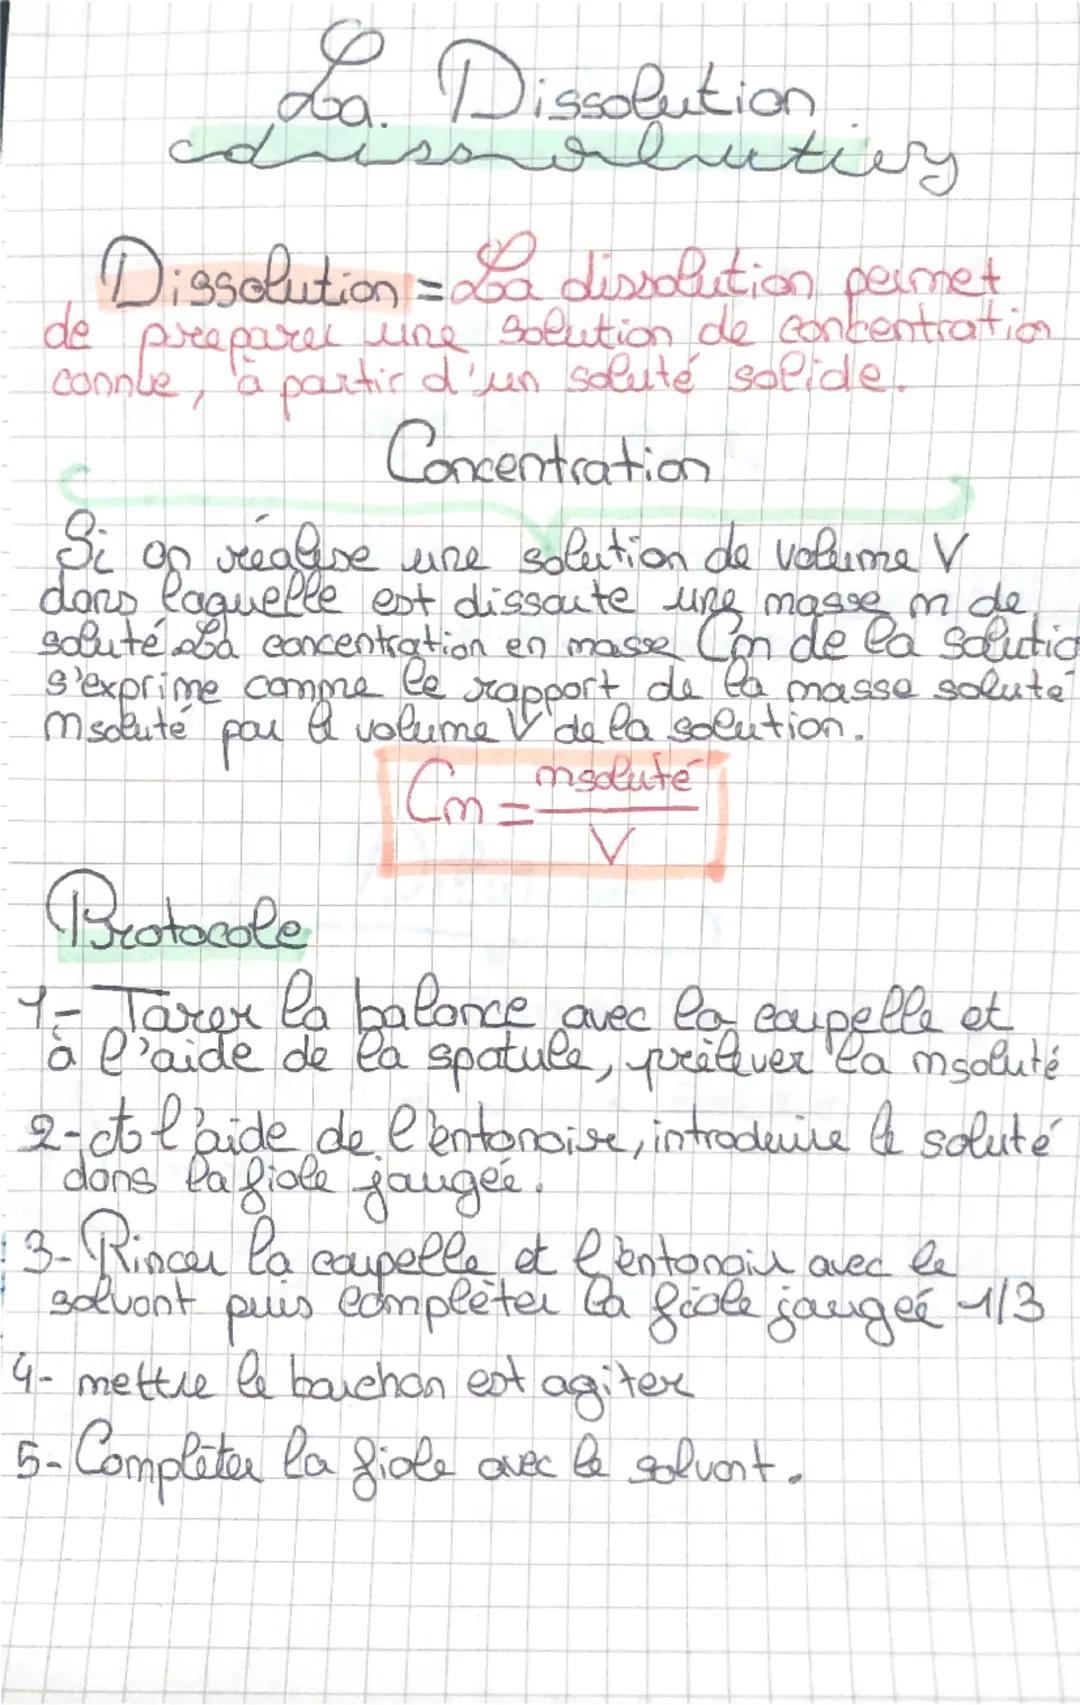 La Dissolution
dissolution
Dissolution = La dissolution permet
de preparer une solution de concentration
connue, à partir d'un soluté solide.
Concentration
Si on réalise une solution de volume V
dans laquelle est dissoute une masse m de
soluté. La concentration en masse Cm de la solutio
s'exprime comme le rapport de la masse soluté
msoluté par le volume V de la solution.
Cm = msoluté
V
Protocole
1- Tarer la balance avec la coupelle et
à l'aide de la spatule, prélever la msoluté
2- A l'aide de l'entonoire, introduire le soluté
dans la fiole jaugée.
3- Rincer la coupelle et l'entonoir avec le
solvant puis compléter la fiole jaugée 1/3
4- mettre le bouchon est agiter
5- Compléter la fiole avec le solvant.